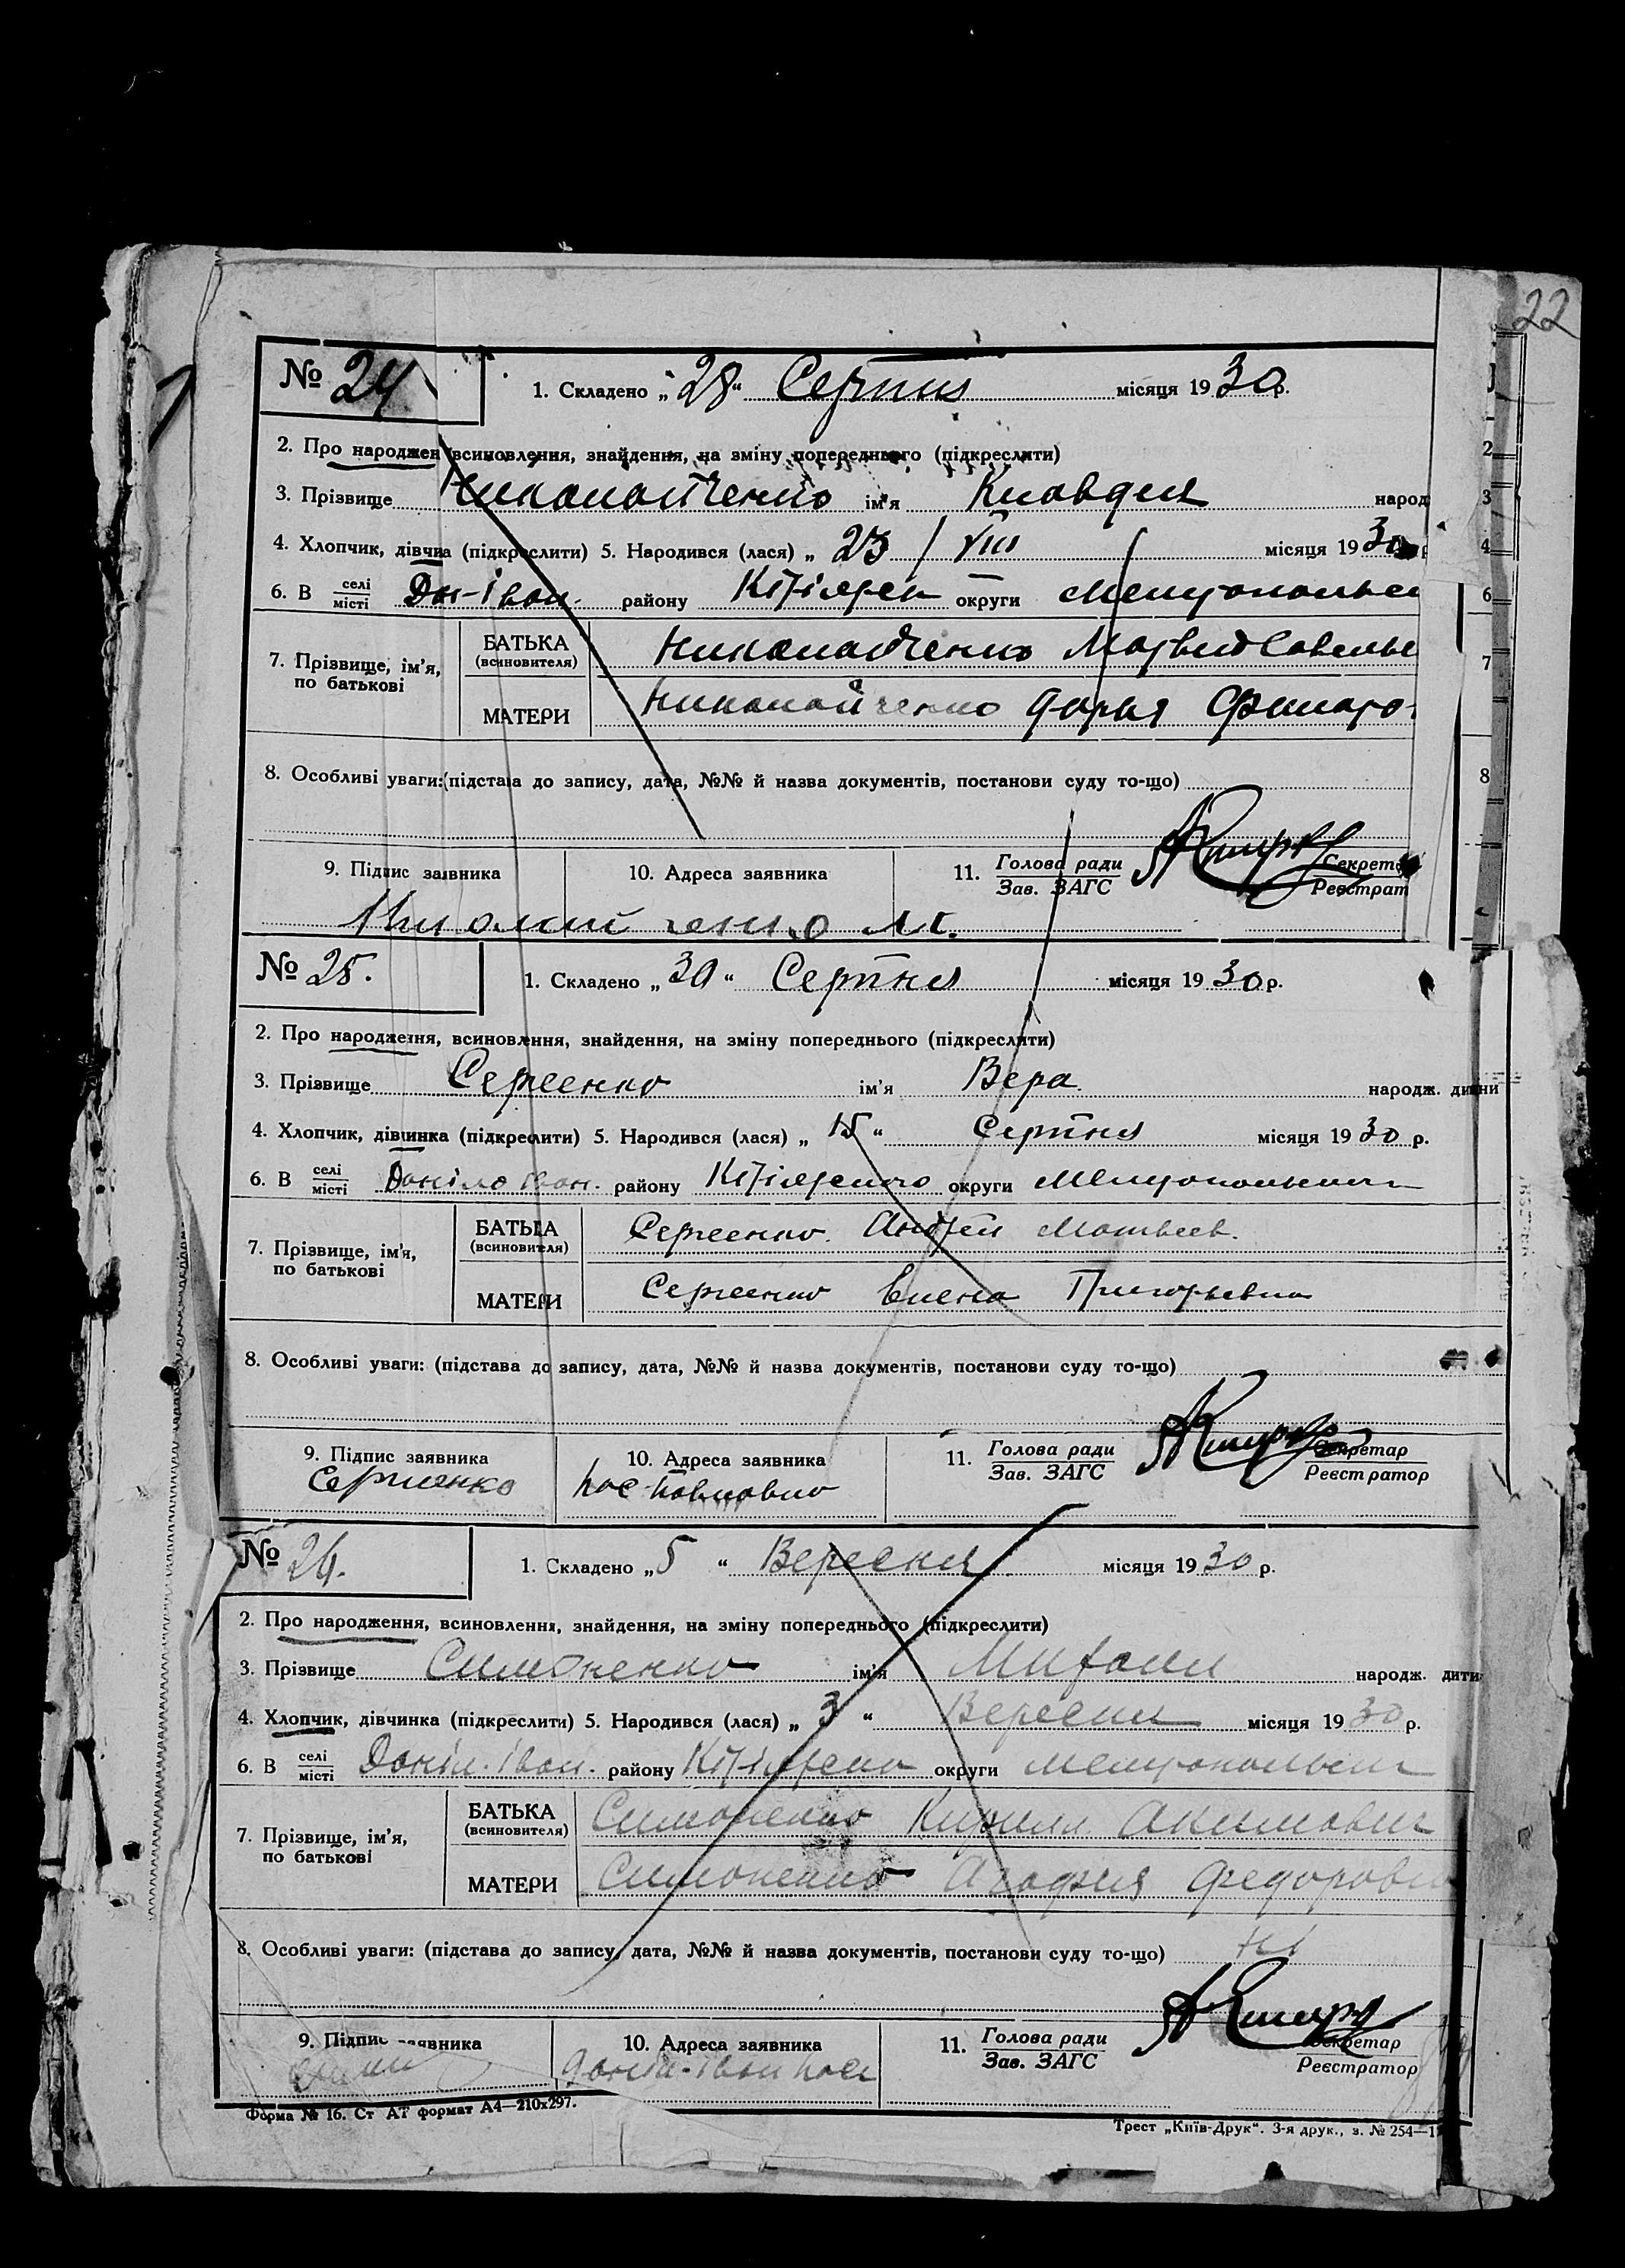 22
№ 24 1. Складено „28“ Серпня місяця 1930 р.
2. Про народжен всиновлення, знайдення, на зміну попереднього (підкреслити)
3. Прізвище Николайченко ім'я Клавдия народ
4. Хлопчик, дівчина (підкреслити) 5. Народився (лася) „ 23 / VIII місяця 1930
6. В селі місті Дан-Іван. району Кізіярск округи Мелитопольс
7. Прізвище, ім'я, по батькові
БАТЬКА (всиновителя) Николайченко Матвий Савелье
МАТЕРИ Николайченко Дарья Филато
8. Особливі уваги: (підстава до запису, дата, №№ й назва документів, постанови суду то-що)
9. Підпис заявника 10. Адреса заявника 11. Голова ради Зав. ЗАГС Секретар Реєстрат
№ 25. 1. Складено „30“ Серпня місяця 1930 р.
2. Про народження, всиновлення, знайдення, на зміну попереднього (підкреслити)
3. Прізвище Сергеенко ім'я Вера народж. дитини
4. Хлопчик, дівчинка (підкреслити) 5. Народився (лася) „ 15 “ Серпня місяця 1930 р.
6. В селі місті Даніло Іван. району Кізіярского округи Мелитопольског
7. Прізвище, ім'я, по батькові
БАТЬКА (всиновителя) Сергеенко Андрей Матвеев.
МАТЕРИ Сергеенко Елена Григорьевна
8. Особливі уваги: (підстава до запису, дата, №№ й назва документів, постанови суду то-що)
9. Підпис заявника 10. Адреса заявника 11. Голова ради Зав. ЗАГС Секретар Реєстратор
Сергиенко пос
№ 26. 1. Складено „5“ Вересня місяця 1930 р.
2. Про народження, всиновлення, знайдення, на зміну попереднього (підкреслити)
3. Прізвище Симоненко ім'я народж. дити
4. Хлопчик, дівчинка (підкреслити) 5. Народився (лася) „ 3 “ Вересня місяця 1930 р.
6. В селі місті Даніл. Іван. району Кізіярско округи Мелитопольск
7. Прізвище, ім'я, по батькові
БАТЬКА (всиновителя) Симоненко Кирилл Акимович
МАТЕРИ Симоненко Агафия Федоровн
8. Особливі уваги: (підстава до запису, дата, №№ й назва документів, постанови суду то-що)
9. Підпис заявника 10. Адреса заявника 11. Голова ради Зав. ЗАГС Секретар Реєстратор
Даніл-Іван пос
Форма № 16. Ст АТ формат А4—210х297.
Трест „Київ-Друк“. 3-я друк., з. № 254—1